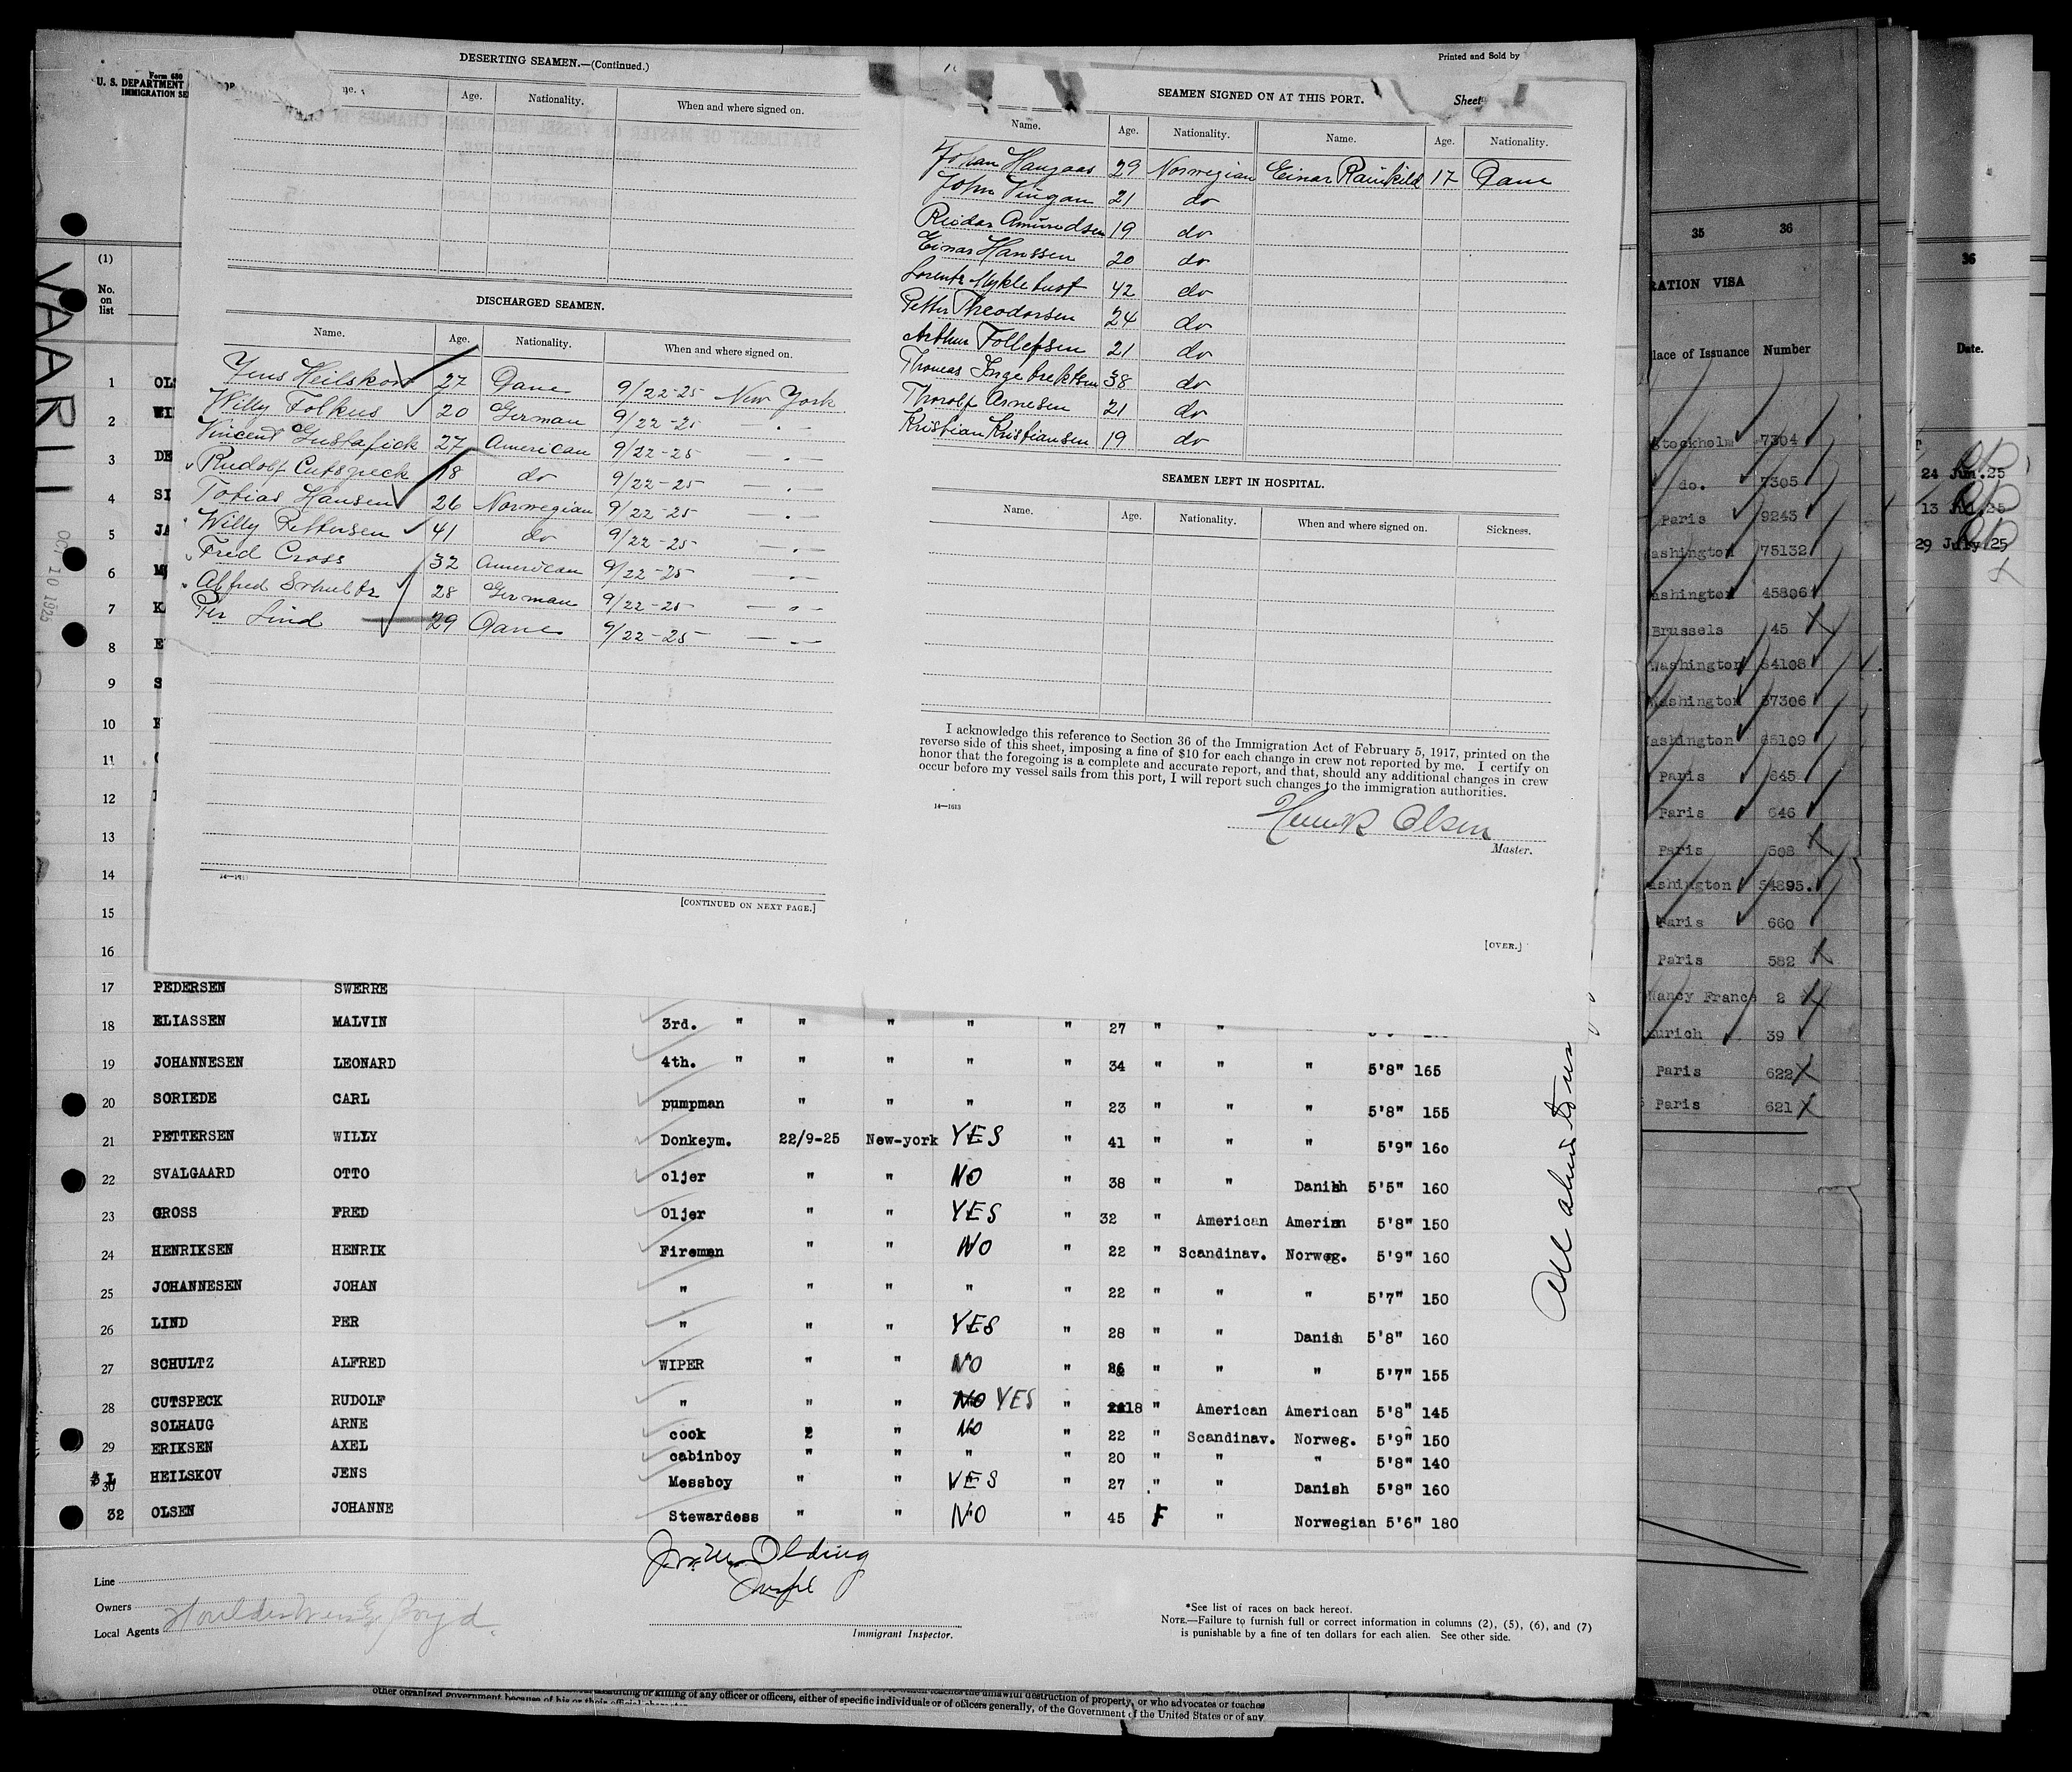 Form 680
U. S. DEPARTMENT
IMMIGRATION SE
VAARLI
(1)
No.
on
list
DESERTING SEAMEN.—(Continued.)
Age. Nationality. When and where signed on.
DISCHARGED SEAMEN.
Name. Age. Nationality. When and where signed on.
Jens Heilskov 27 Dane 9/22-25 New York
Willy Folkus 20 German 9/22-25 — . —
Vincent Gustafick 27 American 9/22-25 — . —
Rudolf Cutspeck 18 do 9/22-25 — . —
Tobias Hansen 26 Norwegian 9/22-25 — . —
Willy Pettersen 41 do 9/22-25 — . —
Fred Cross 32 American 9/22-25 — . —
Alfred Schultz 28 German 9/22-25 — . —
Per Lind 29 Dane 9/22-25 — . —
[CONTINUED ON NEXT PAGE.]
Printed and Sold by
SEAMEN SIGNED ON AT THIS PORT.
Sheet
Name. Age. Nationality. Name. Age. Nationality.
Johan Haugaas 29 Norwegian Einar Rainkild 17 Dane
John Vingan 21 do
Reidar Amundsen 19 do
Einar Hanssen 20 do
Lorentz Myklebust 42 do
Petter Theodorsen 24 do
Arthur Tollefsen 21 do
Thomas Ingebrektsen 38 do
Thorolf Arnesen 21 do
Kristian Kristiansen 19 do
SEAMEN LEFT IN HOSPITAL.
Name. Age. Nationality. When and where signed on. Sickness.
I acknowledge this reference to Section 36 of the Immigration Act of February 5, 1917, printed on the
reverse side of this sheet, imposing a fine of $10 for each change in crew not reported by me. I certify on
honor that the foregoing is a complete and accurate report, and that, should any additional changes in crew
occur before my vessel sails from this port, I will report such changes to the immigration authorities.
14—1613
Henrik Olsen
Master.
[OVER.]
1 OL
2 WI
3 DE
4 SI
5 JA
6
7 K
8 E
9 S
10
11
12
13
14
15
16
17 PEDERSEN SWERRE
18 ELIASSEN MALVIN 3rd. " " " " " 27 " "
19 JOHANNESEN LEONARD 4th. " " " " " 34 " " " 5'8" 165
20 SORIEDE CARL pumpman " " " " 23 " " " 5'8" 155
21 PETTERSEN WILLY Donkeym. 22/9-25 New-york YES " 41 " " " 5'9" 160
22 SVALGAARD OTTO oljer " " NO " 38 " " Danish 5'5" 160
23 GROSS FRED Oljer " " YES " 32 " American Amerian 5'8" 150
24 HENRIKSEN HENRIK Fireman " " NO " 22 " Scandinav. Norweg. 5'9" 160
25 JOHANNESEN JOHAN " " " " " 22 " " " 5'7" 150
26 LIND PER " " " YES " 28 " " Danish 5'8" 160
27 SCHULTZ ALFRED WIPER " " NO " " " " 5'7" 155
28 CUTSPECK RUDOLF " " " NO YES " 18 " American American 5'8" 145
SOLHAUG ARNE cook " NO " 22 " Scandinav. Norweg. 5'9" 150
29 ERIKSEN AXEL cabinboy " " " " 20 " " " 5'8" 140
30 HEILSKOV JENS Messboy " " YES " 27 " " Danish 5'8" 160
32 OLSEN JOHANNE Stewardess " " NO " 45 F " Norwegian 5'6" 180
Line
Owners
Local Agents
Olding
Immigrant Inspector.
*See list of races on back hereof.
NOTE.—Failure to furnish full or correct information in columns (2), (5), (6), and (7)
is punishable by a fine of ten dollars for each alien. See other side.
unlawful destruction of property, or who advocates or teaches
or killing of any officer or officers, either of specific individuals or of officers generally, of the Government of the United States or of any
other organized government because of his or their official
35 36
RATION VISA
lace of Issuance Number
Stockholm 7304
do. 7305
Paris 9243
ashington 75132
ashington 45806
Brussels 45
Washington 64108
Washington 57306
ashington 65109
Paris 645
Paris 646
Paris 508
ashington 54895.
Paris 660
Paris 582
Nancy France 2
urich 39
Paris 622
Paris 621
36
Date.
24 Jun.25
13 Jul.25
29 July 25